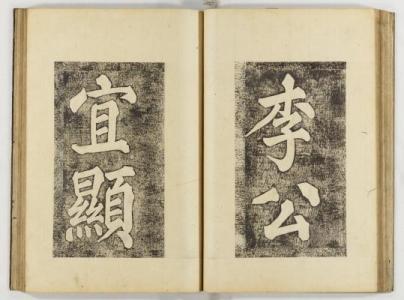 李公
宜顯